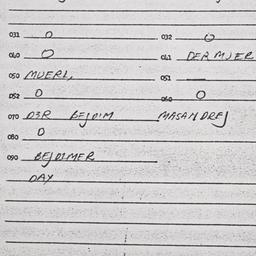 031 0 032 0
040 0 041 DER MUER
050 MUERL, 051 —
052 0 060 0
070 D3R BEJDIM MASANDREJ
080 0
090 BEJDIMER
DAY